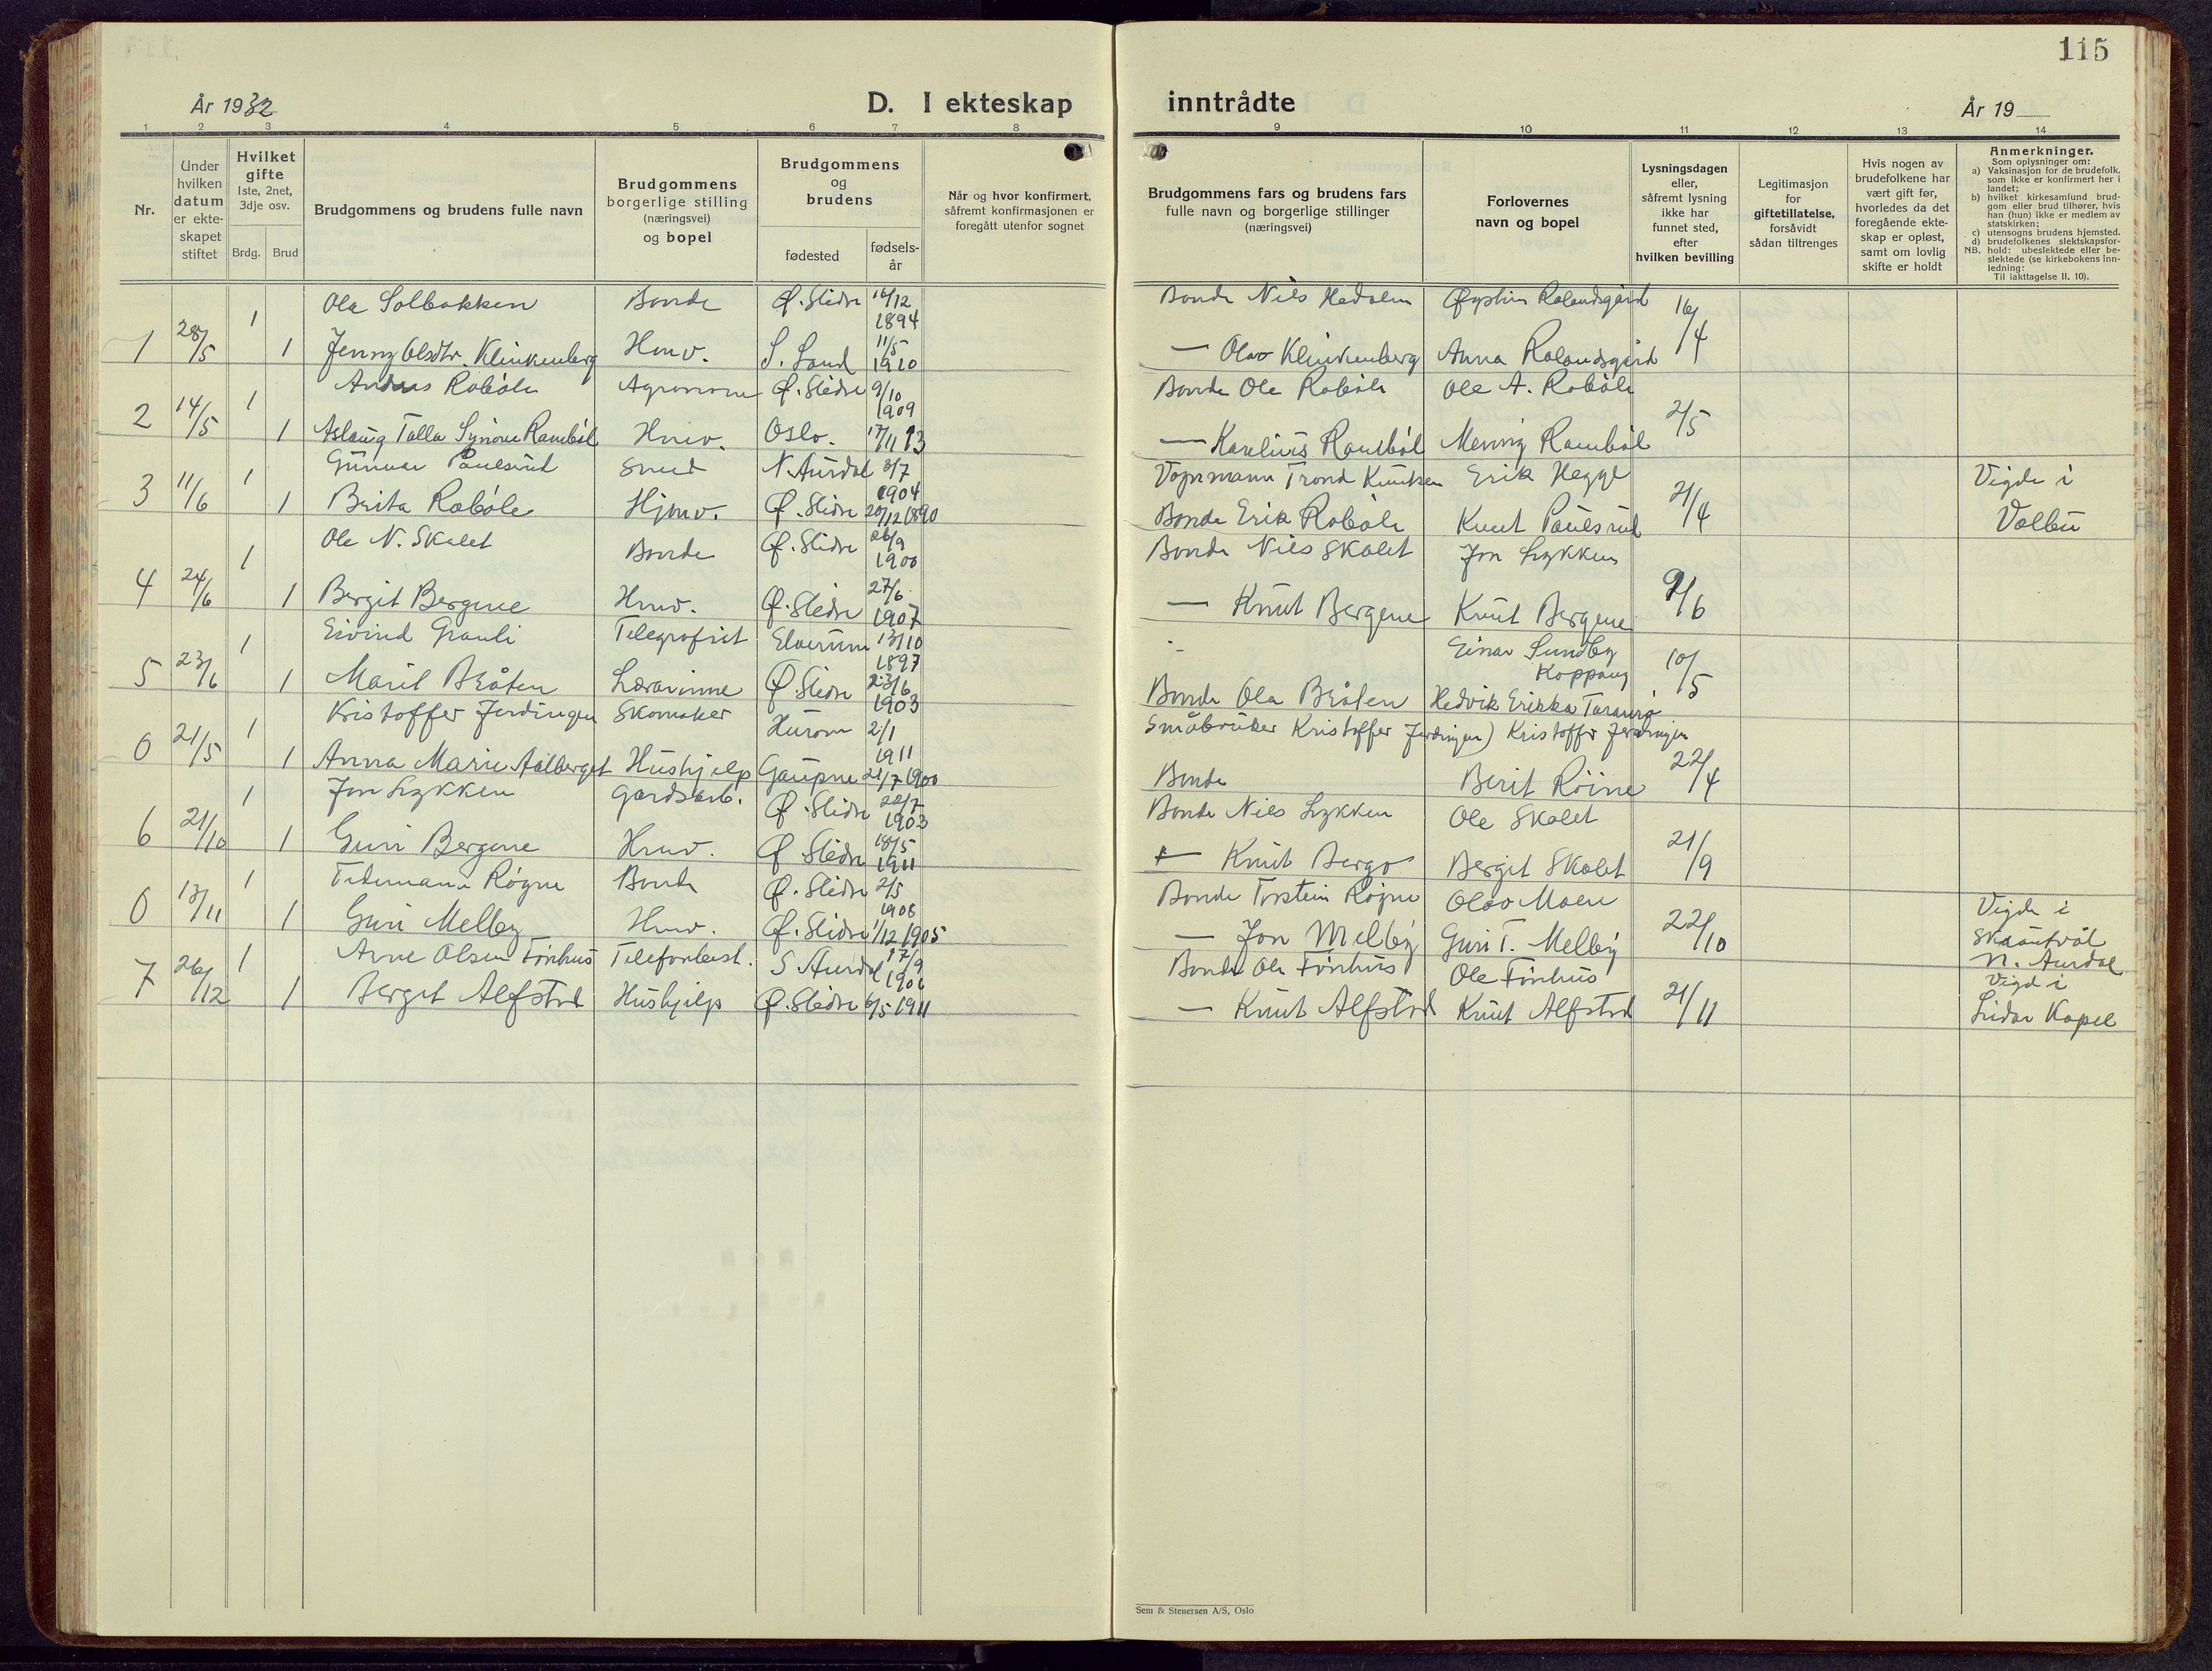 115
År 1932
D. I ekteskap inntrådte
År 19
1 2 3 4 5 6 7 8 9 10 11 12 13 14
Nr.
Under hvilken datum er ekteskapet stiftet
Hvilket gifte
1ste, 2net, 3dje osv.
Brdg. Brud
Brudgommens og brudens fulle navn
Brudgommens borgerlige stilling (næringsvei) og bopel
Brudgommens og brudens
fødested
fødsels-
år
Når og hvor konfirmert,
såfremt konfirmasjonen er
foregått utenfor sognet
Brudgommens fars og brudens fars
fulle navn og borgerlige stillinger
(næringsvei)
Forlovernes
navn og bopel
Lysningsdagen
eller,
såfremt lysning
ikke har
funnet sted,
efter
hvilken bevilling
Legitimasjon
for
giftetillatelse,
forsåvidt
sådan tiltrenges
Hvis nogen av
brudefolkene har
vært gift før,
hvorledes da det
foregående ekte-
skap er opløst,
samt om lovlig
skifte er holdt
Anmerkninger.
Som oplysninger om:
a) Vaksinasjon for de brudefolk.
som ikke er konfirmert her i
landet;
b) hvilket kirkesamfund brud-
gom eller brud tilhører, hvis
han (hun) ikke er medlem av
statskirken;
c) utensogns brudens hjemsted.
d) brudefolkenes slektskapsfor-
NB. hold: ubeslektede eller be-
slektede (se kirkebokens Inn-
ledning:
Til iakttagelse II. 10).
1 Ola Solbakken Bonde Ø. Slidre 16/12 1894 Bonde Nils Hedalen Øystein Rolandsgård
1 28/5 1 Jenny Olsdtr. Klinkenberg Hmv. S. Land 11/5 1910 — Olav Klinkenberg Anna Rolandsgård 16/4
1 Anders Robøle Agronom Ø. Slidre 9/10 1909 Bonde Ole Robøle Ole A. Robøle
2 14/5 1 Aslaug Talla Synøve Rambøl Hmv. Oslo. 17/11 13 — Karelius Rambøl Menny Rambøl 2/5
1 Gunnar Paulsrud Smed N. Aurdal 3/7 1904 Trond Knutsen Erik Hegge Vigde i
3 11/6 1 Brita Robøle Hjmv. Ø. Slidre 20/12 1890 Bonde Erik Robøle Knut Paulsrud 21/4 Volbu
1 Ole N. Skalet Bonde Ø. Slidre 26/9 1900 Bonde Nils Skalet Jon Lykken
4 24/6 1 Bergit Bergene Hmv. Ø. Slidre 27/6 1907 — Knut Bergene Knut Bergene 9/6
1 Eivind Grauli Telegrafist Elverum 13/10 1897 - Einar Sundby Koppang
5 23/6 1 Marit Bråten Lærarinne Ø. Slidre 23/6 1903 Bonde Ola Bråten Hedvik Erikka 10/5
1 Kristoffer Jerdingen Skomaker Hurom 2/1 1911 Småbruker Kristoffer Jerdingen) Kristoffer Jerdingen
0 21/5 1 Anna Marie Aalberget Hushjelp Gaupne 21/7 1900 Bonde Berit Röine 22/4
1 Jon Lykken Gardsarb. Ø. Slidre 20/7 1903 Bonde Nils Lykken Ole Skalet
6 21/10 1 Guri Bergene Hmv. Ø. Slidre 18/5 1911 — Knut Bergo Bergit Skalet 21/9
1 Tidemann Røgne Bonde Ø. Slidre 2/5 1908 Bonde Torstein Røgne Olav Moen Vigde i
0 13/11 1 Guri Melby Hmv. Ø. Slidre 1/12 1905 — Jon Melby Guri T. Melby 22/10 Skautvål N. Aurdal
1 Arne Olsen Tønhus Telefonbest. S Aurdal 17/9 1906 Bonde Ole Tønhus Ole Tønhus Vigd i
7 26/12 1 Bergit Alfstad Hushjelp Ø. Slidre 6/5 1911 — Knut Alfstad Knut Alfstad 21/11 Lidar Kapel
Sem & Stenersen A/S, Oslo